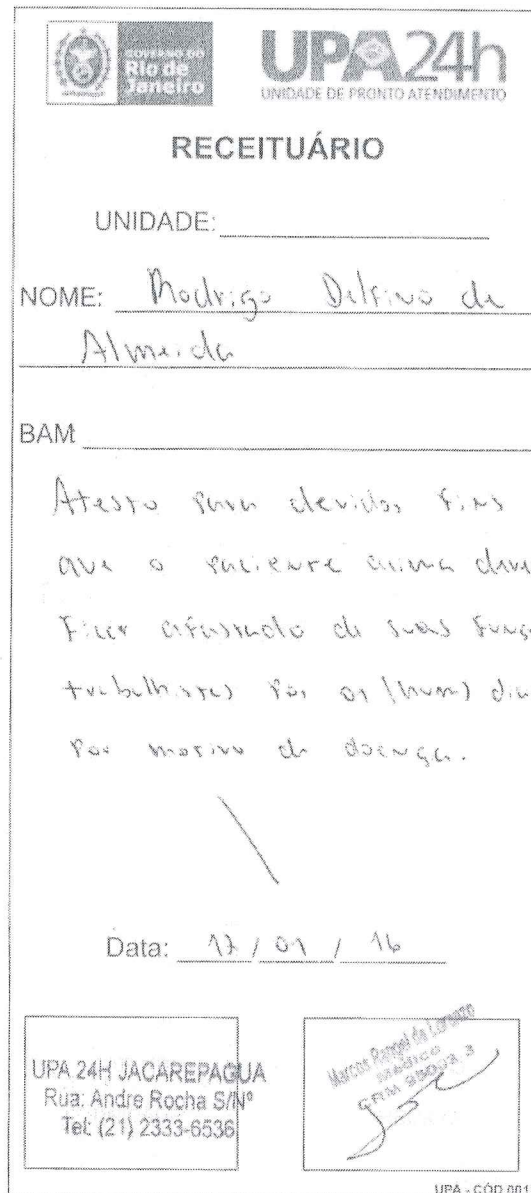 GOVERNO DO
Rio de
Janeiro
UPA24h
UNIDADE DE PRONTO ATENDIMENTO
RECEITUÁRIO
UNIDADE:
NOME: Rodrigo Delfino de
Almeida
BAM
Atesto para devidos fins
que o paciente acima deve
ficar afastado de suas funç
trabalhistas por 01 (hum) dia
por motivo de doença.
Data: 17 / 01 / 16
UPA 24H JACAREPAGUA
Rua: Andre Rocha S/Nº
Tel: (21) 2333-6536
Marcos Rangel de
Médico
CRM
UPA - CÓD.001